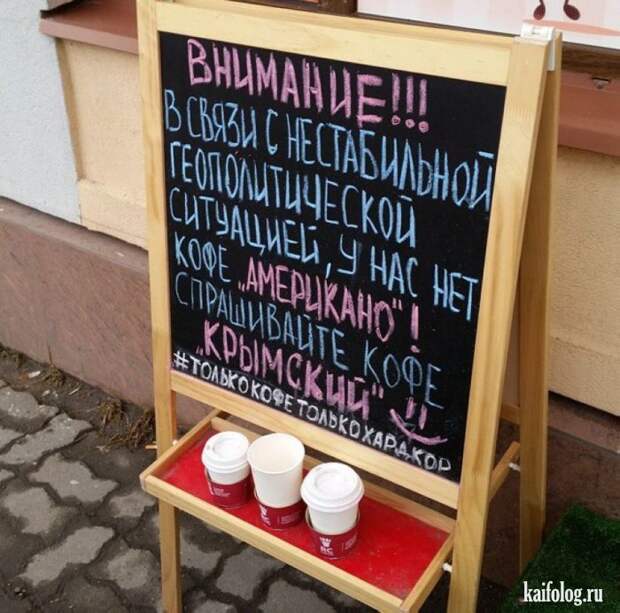 ВНИМАНИЕ!!!
В СВЯЗИ С НЕСТАБИЛЬНОЙ
ГЕОПОЛИТИЧЕСКОЙ
СИТУАЦИЕЙ, У НАС НЕТ
КОФЕ „АМЕРИКАНО"!
СПРАШИВАЙТЕ КОФЕ
„КРЫМСКИЙ"
#ТОЛЬКОКОФЕТОЛЬКОХАРДКОР
kaifolog.ru